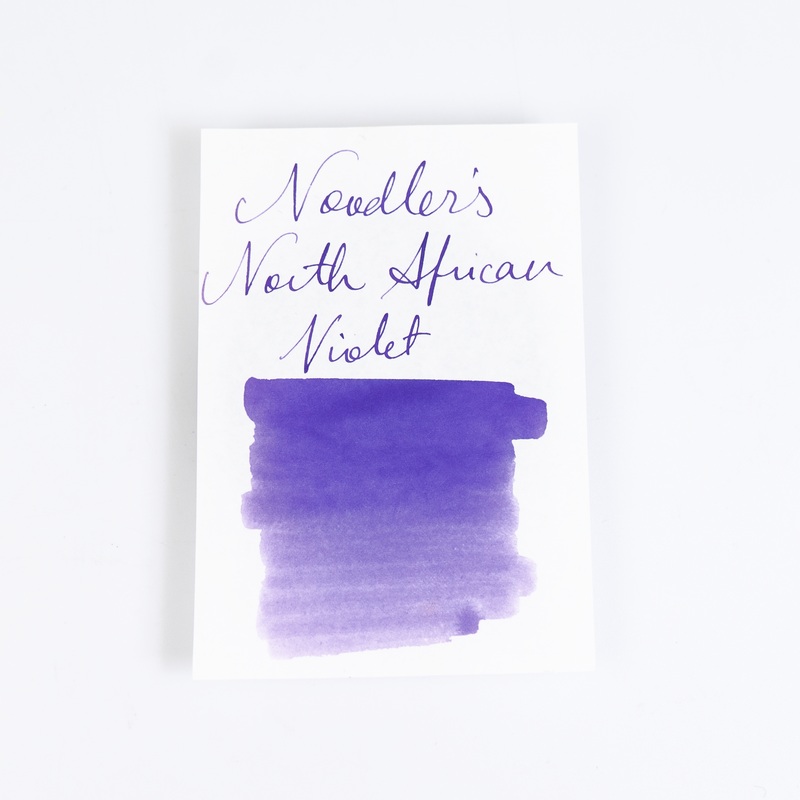 Noodler's
North African
Violet